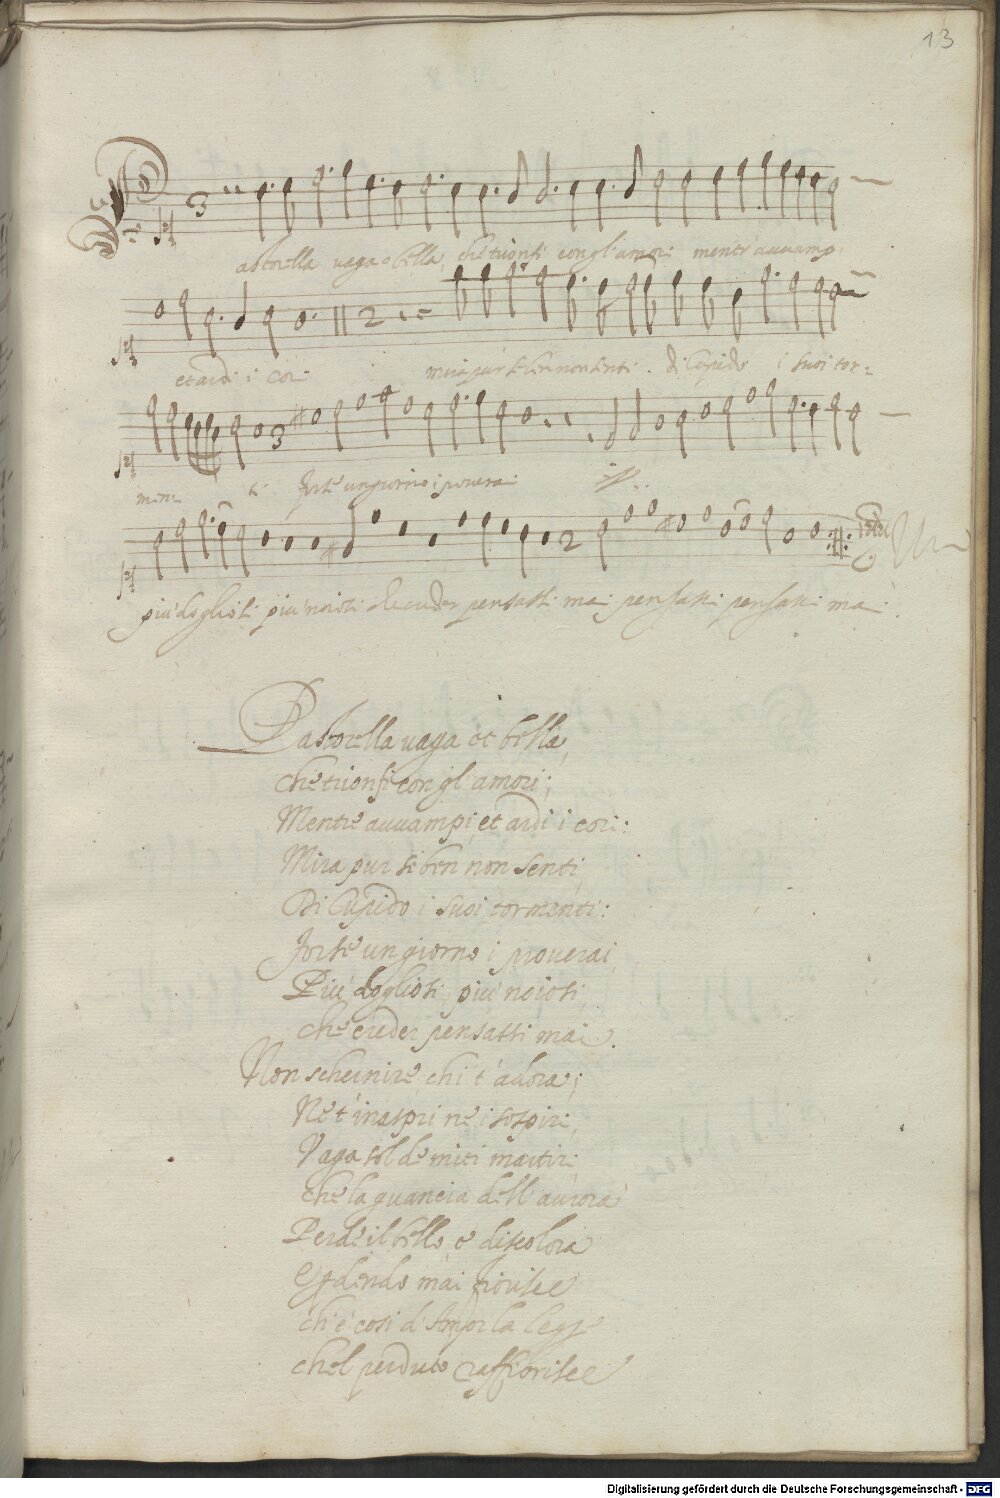 13
3
astorella vaga e bella, che trionfi con gl'amori mentr'avvamp
et ardi i cori mira pur se ben non senti. di Cupido i suoi tor=
men: ti forse un giorno i proverai ij..
piu dogliosi piu noiosi che creder pensasti mai pensasti pensasti mai.
Pastorella vaga et bella,
che trionfi con gl'amori;
Mentre avvampi, et ardi i cori:
Mira pur se ben non senti,
Di Cupido i suoi tormenti:
Forse un giorno i proverai,
Piu dogliosi, piu noiosi,
che creder pensasti mai.
Non schernire chi t'adora;
Ne t'inaspri ne i sospiri,
Vaga sol de miei martiri
che la guancia dell'aurora
Perde il bello, e discolora
perdendo mai fiorisce
ch'è cosi d'Amor la legge
chel perduto raffiorisce
Digitalisierung gefördert durch die Deutsche Forschungsgemeinschaft - DFG